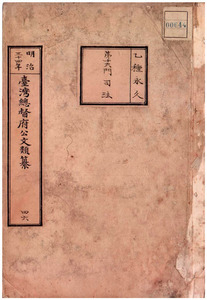 乙種永久
第十六門司法
明治
三十四年
臺灣總督府公文類纂
四六